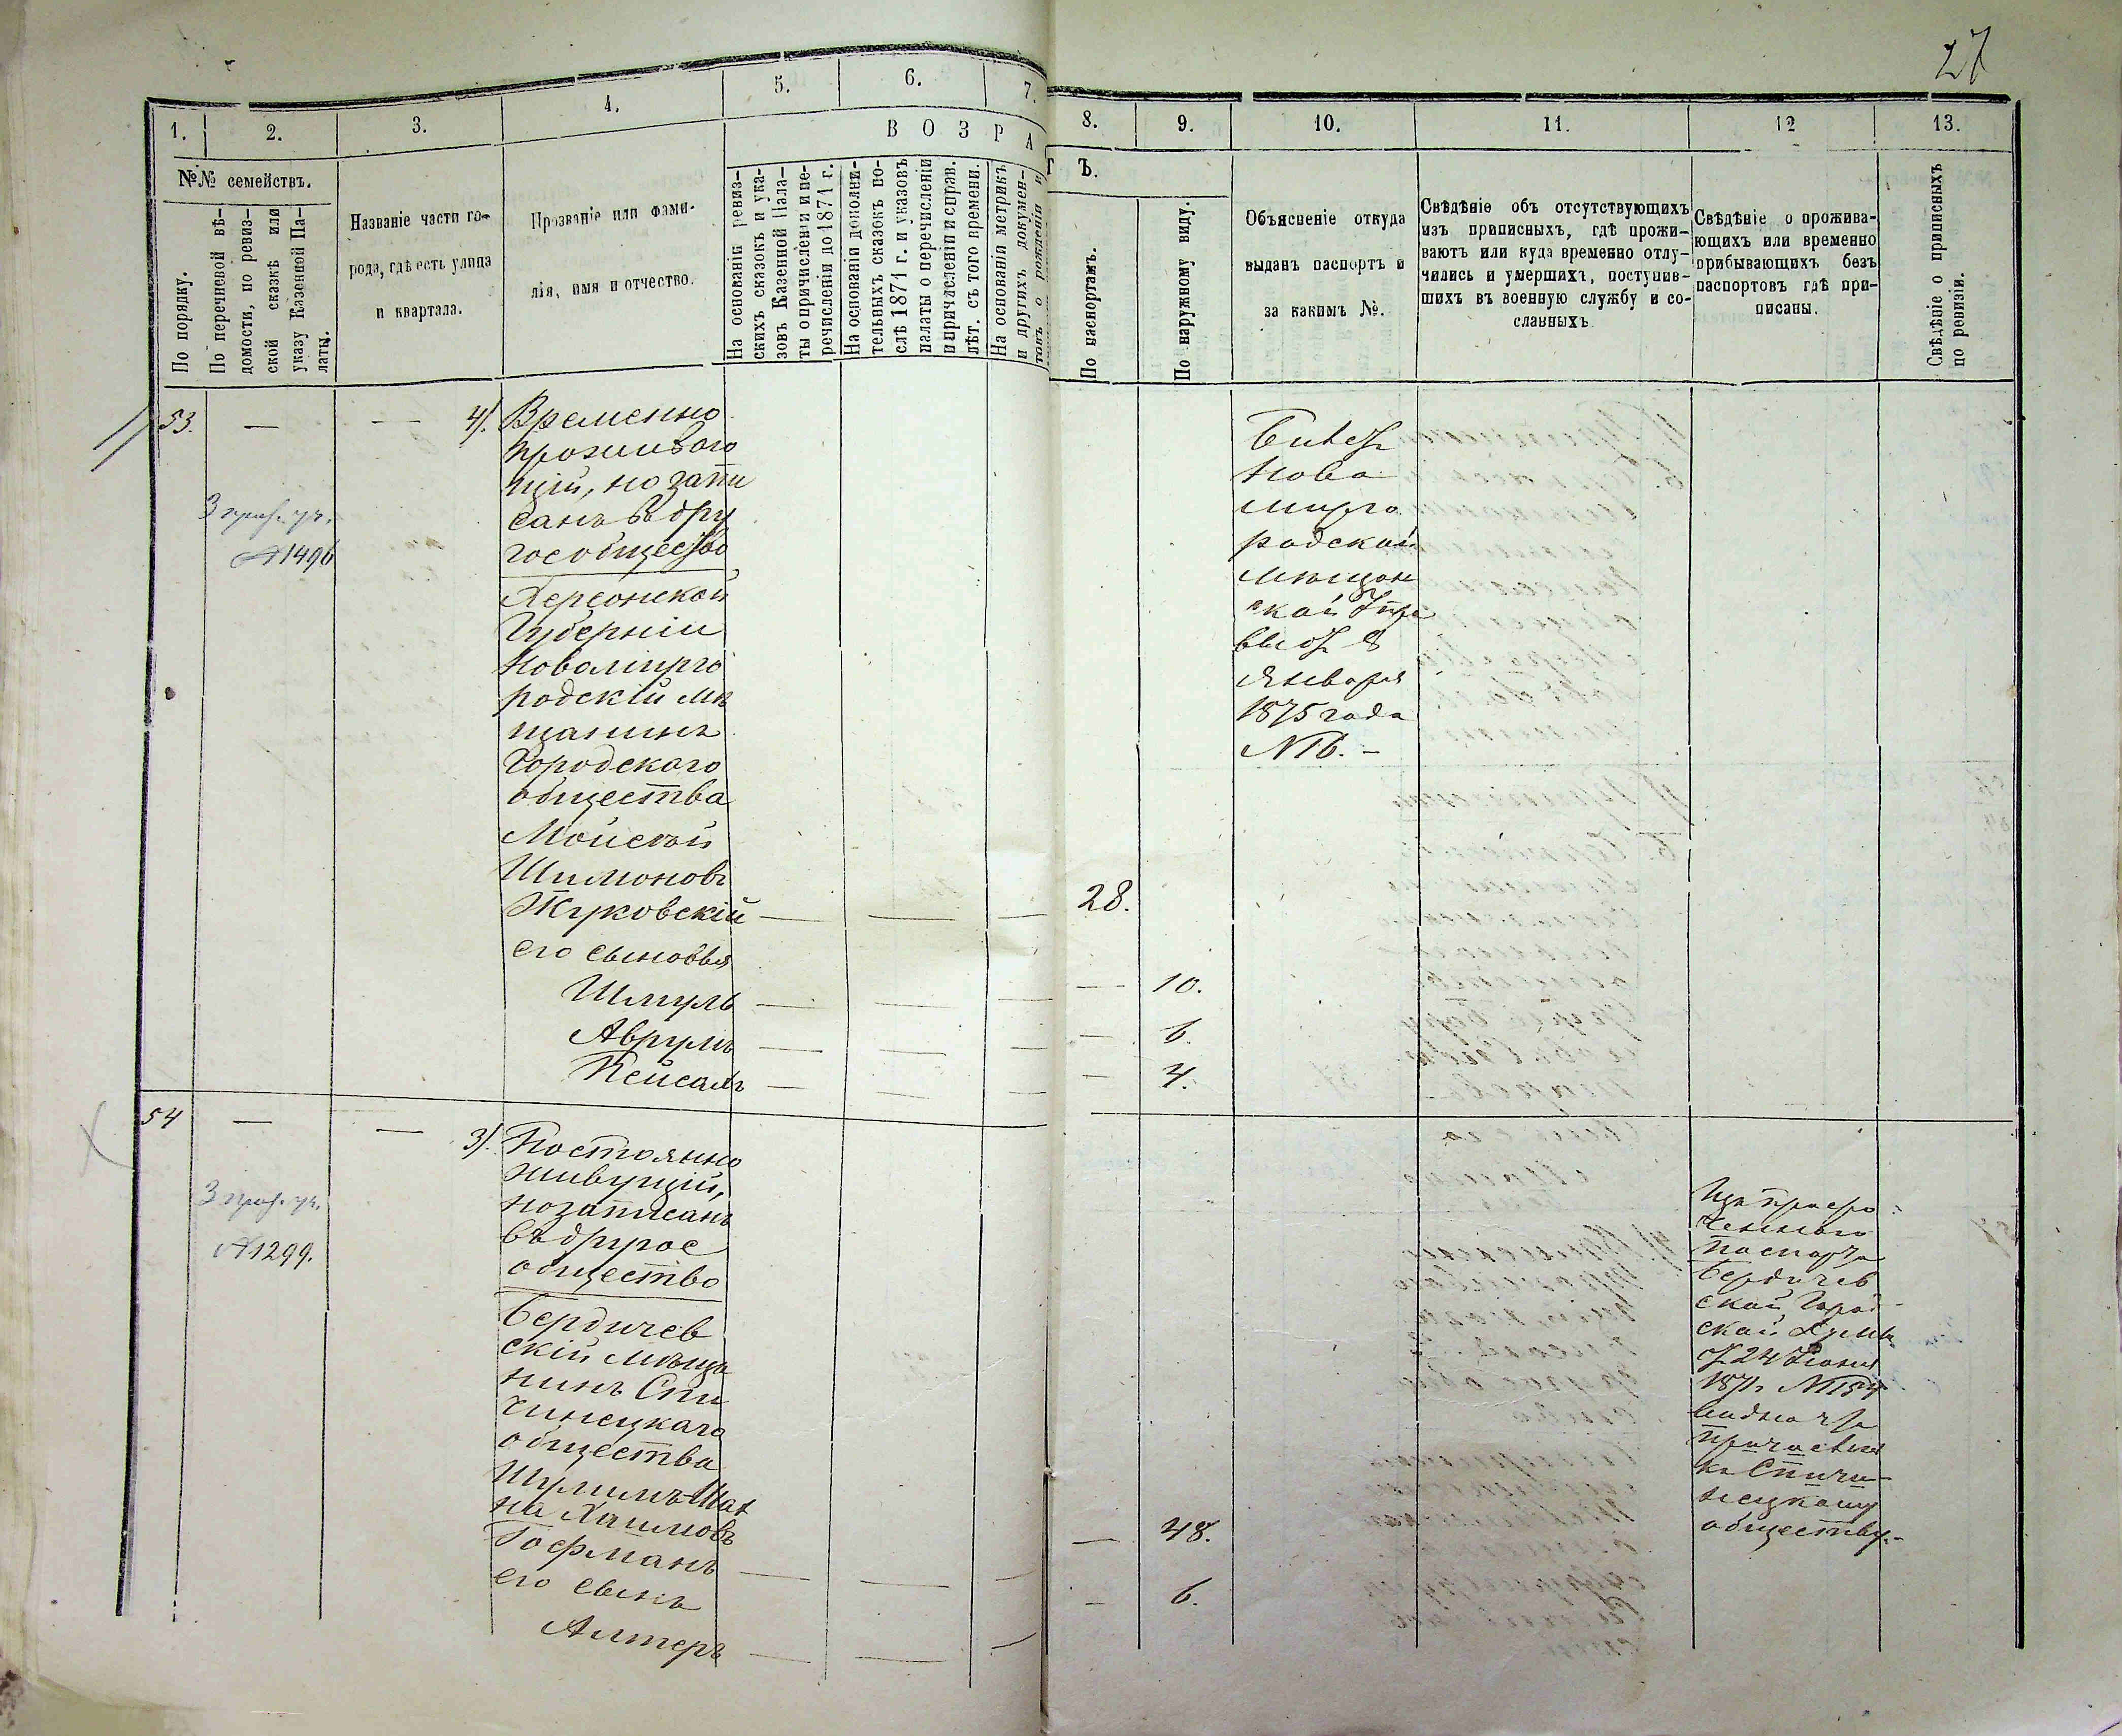 27
1.
2.
3.
4.
5.
6.
7.
8.
9.
10.
11.
12
13.
В О З Р А
Т Ъ.
№№ семействъ.
По порядку.
По перечневой вѣ-
домости, по ревиз-
ской сказкѣ или
указу Казенной Па-
латы.
Названіе части го-
рода, гдѣ есть улица
и квартала.
Прозваніе или фами-
лія, имя и отчество.
На основаніи ревиз-
скихъ сказокъ и ука-
зовъ Казенной Пала-
ты о причисленіи и пе-
речисленіи до 1871 г.
На основаніи дополни-
тельныхъ сказокъ по-
слѣ 1871 г. и указовъ
палаты о перечисленіи
и причисленіи и справ.
лѣт. съ того времени.
На основаніи метрикъ
и другихъ докумен-
товъ о рожденіи и
По паспортамъ.
По наружному виду.
Объясненіе откуда
выданъ паспортъ и
за какимъ №.
Свѣдѣніе объ отсутствующихъ
изъ приписныхъ, гдѣ прожи-
ваютъ или куда временно отлу-
чились и умершихъ, поступив-
шихъ въ военную службу и со-
сланныхъ
Свѣдѣніе о прожива-
ющихъ или временно
прибывающихъ безъ
паспортовъ гдѣ при-
писаны.
Свѣдѣніе о приписныхъ
по ревизіи.
53.
—
—
4).
Временно
проживаю
щій, но запи
санъ въ дру
гое общество
Херсонской
Губерніи
Новомирго
родскій мѣ
щанинъ
Городского
общества
Мойсей
Шимоновъ
Жуковскій — — — 28.
его сыновья
Шмуль — — — — 10.
Аврумъ — — — — 6.
Кейсалъ — — — — 4.
3 уч.
№1496
Билетъ
Ново
мирго
родской
мѣщан
ской Упра
вы отъ 8
Января
1875 года
№16. –
54
—
—
3).
Постоянно
живущій,
но записанъ
въ другое
общество
Бердичев
скій мѣща
нинъ Спи
чинецкаго
общества
Шулимъ-Шах
на Хаимовъ
Гофманъ — — — — 48.
его сынъ
Алтеръ — — — — 6.
3 уч.
№1299.
Изъ просро
ченнаго
паспорта
Бердичев
ской Город
ской Думы
отъ 24 Іюня
187 г. №1154
видно что
причисленъ
къ Спичи-
нецкому
обществу.-